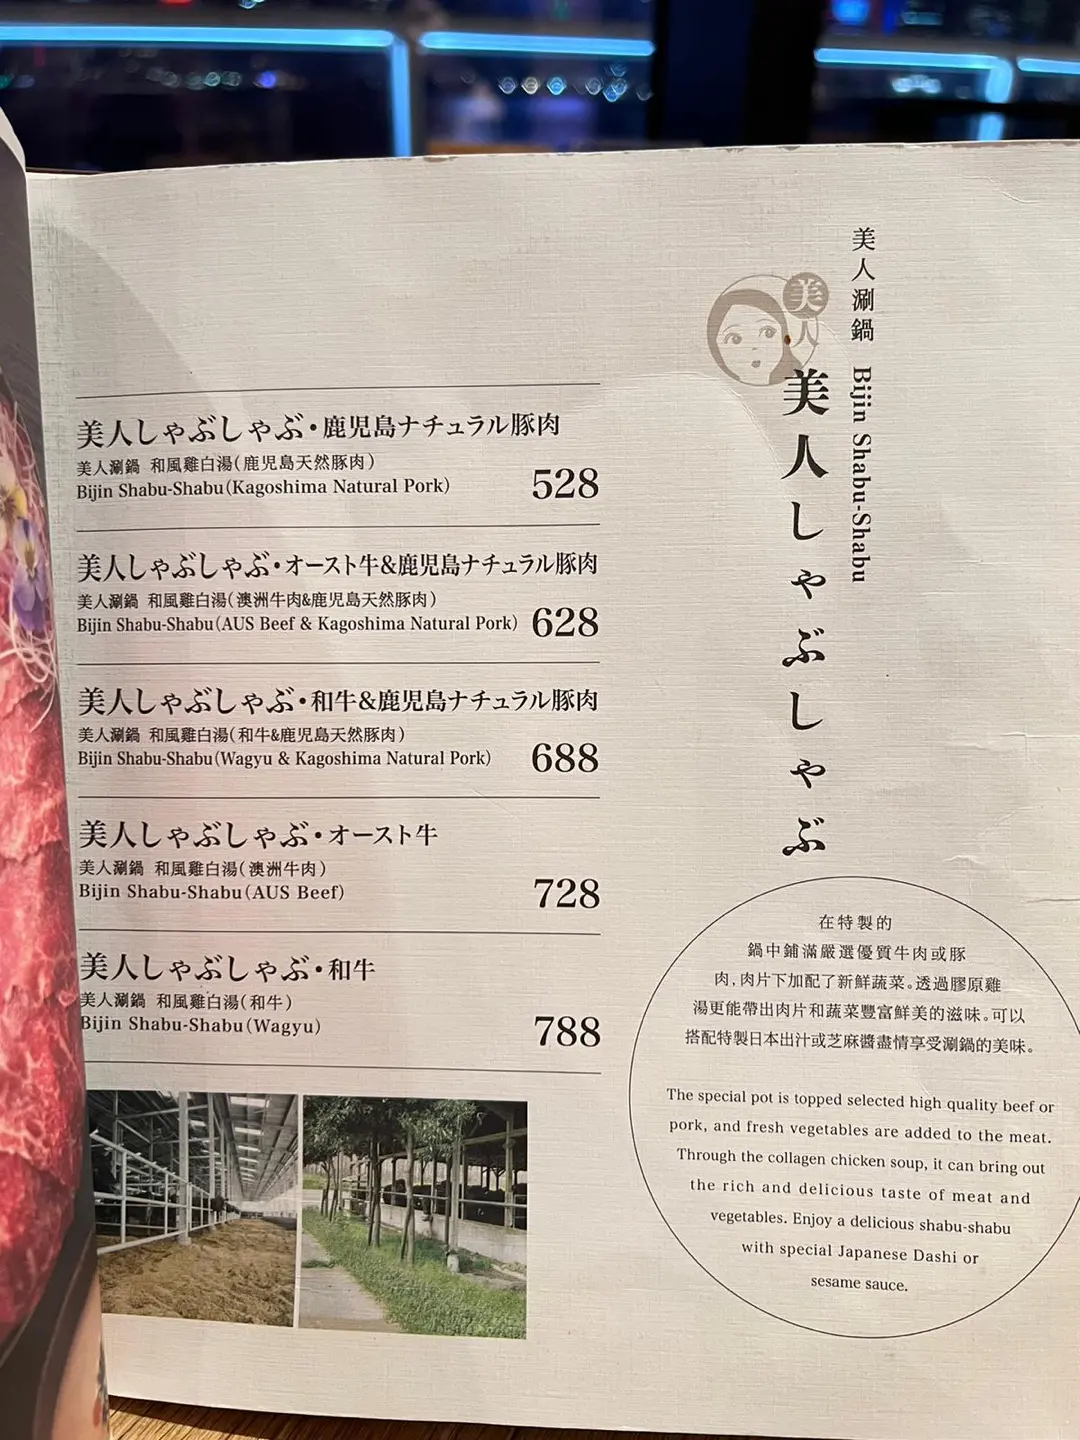 美人しゃぶしゃぶ・鹿児島ナチュラル豚肉
美人涮鍋 和風雞白湯(鹿児島天然豚肉)
Bijin Shabu-Shabu(Kagoshima Natural Pork)
528
美人しゃぶしゃぶ・オースト牛&鹿児島ナチュラル豚肉
美人涮鍋 和風雞白湯(澳洲牛肉&鹿児島天然豚肉)
Bijin Shabu-Shabu(AUS Beef & Kagoshima Natural Pork)
628
美人しゃぶしゃぶ・和牛&鹿児島ナチュラル豚肉
美人涮鍋 和風雞白湯(和牛&鹿児島天然豚肉)
Bijin Shabu-Shabu(Wagyu & Kagoshima Natural Pork)
688
美人しゃぶしゃぶ・オースト牛
美人涮鍋 和風雞白湯(澳洲牛肉)
Bijin Shabu-Shabu(AUS Beef)
728
美人しゃぶしゃぶ・和牛
美人涮鍋 和風雞白湯(和牛)
Bijin Shabu-Shabu(Wagyu)
788
美人涮鍋 Bijin Shabu-Shabu
美人
美人しゃぶしゃぶ
在特製的
鍋中鋪滿嚴選優質牛肉或豚
肉,肉片下加配了新鮮蔬菜。透過膠原雞
湯更能帶出肉片和蔬菜豐富鮮美的滋味。可以
搭配特製日本出汁或芝麻醬盡情享受涮鍋的美味。
The special pot is topped selected high quality beef or
pork, and fresh vegetables are added to the meat.
Through the collagen chicken soup, it can bring out
the rich and delicious taste of meat and
vegetables. Enjoy a delicious shabu-shabu
with special Japanese Dashi or
sesame sauce.